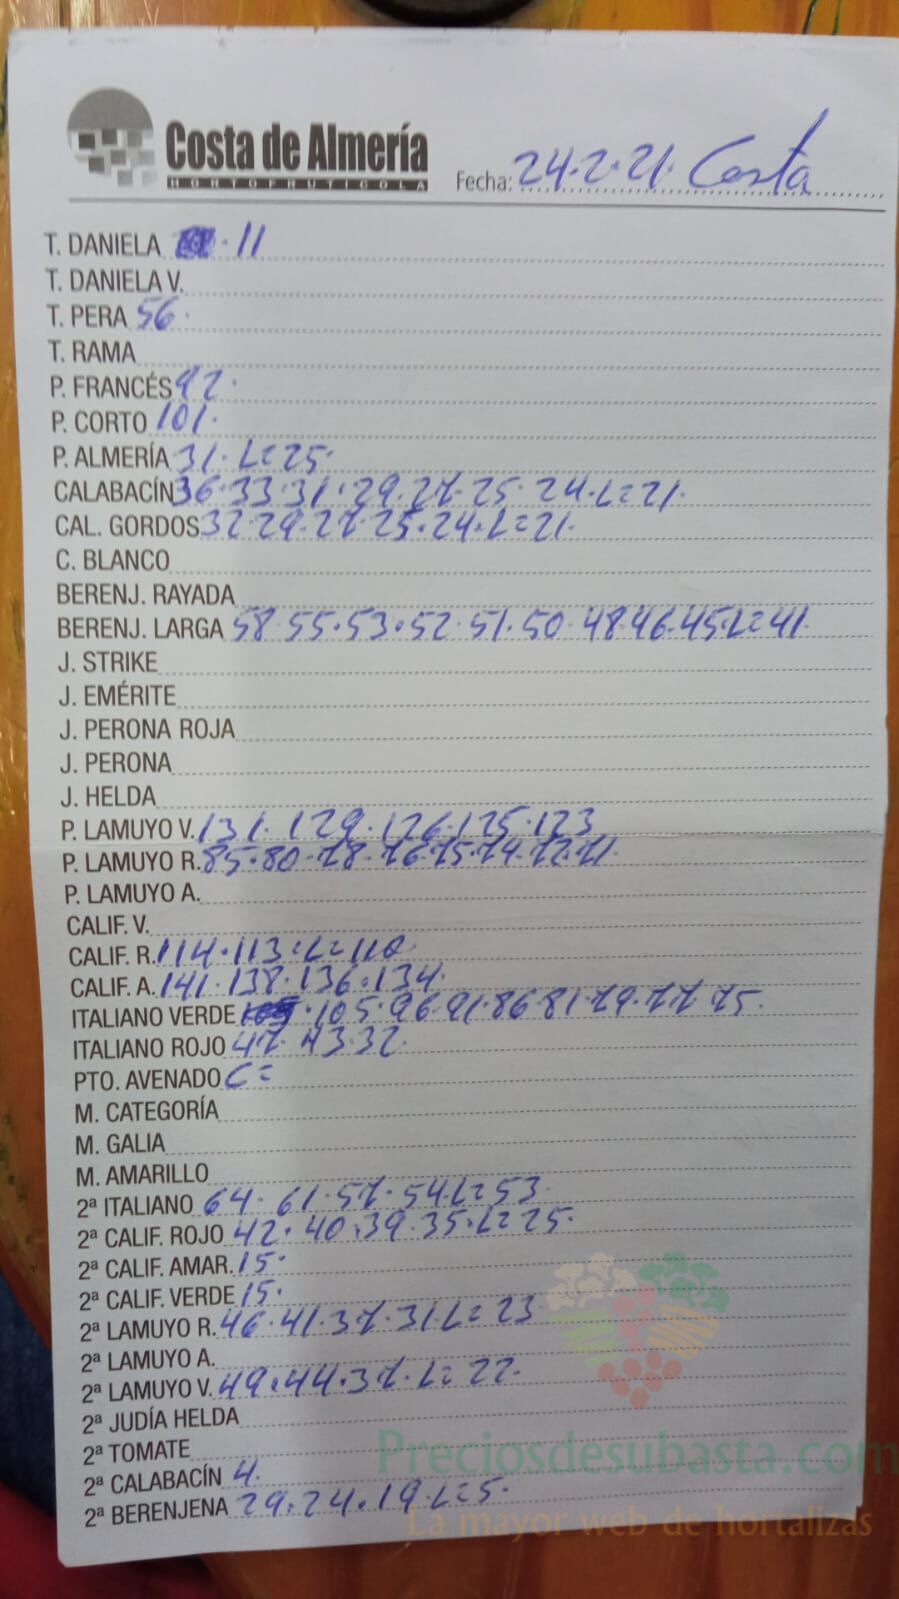 Costa de Almería
HORTOFRUTICOLA
Fecha: 24·2·21· Costa
T. DANIELA · 11
T. DANIELA V.
T. PERA 56·
T. RAMA
P. FRANCÉS 92·
P. CORTO 101·
P. ALMERÍA 31· L=25·
CALABACÍN 36·33·31·29·27·25·24·L=21·
CAL. GORDOS 32·29·27·25·24·L=21·
C. BLANCO
BERENJ. RAYADA
BERENJ. LARGA 58·55·53·52·51·50·48·46·45·L=41·
J. STRIKE
J. EMÉRITE
J. PERONA ROJA
J. PERONA
J. HELDA
P. LAMUYO V. 131·129·126·125·123
P. LAMUYO R. 85·80·78·76·75·74·72·71·
P. LAMUYO A.
CALIF. V.
CALIF. R. 114·113·L=110
CALIF. A. 141·138·136·134
ITALIANO VERDE ·105·96·91·86·81·79·77·75·
ITALIANO ROJO 47·43·32·
PTO. AVENADO C=
M. CATEGORÍA
M. GALIA
M. AMARILLO
2ª ITALIANO 64·61·57·54·L=53·
2ª CALIF. ROJO 42·40·39·35·L=25·
2ª CALIF. AMAR. 15·
2ª CALIF. VERDE 15·
2ª LAMUYO R. 46·41·37·31 L=23
2ª LAMUYO A.
2ª LAMUYO V. 49·44·37·L=22·
2ª JUDÍA HELDA
2ª TOMATE
2ª CALABACÍN 4·
2ª BERENJENA 29·24·19·L=5·
Preciosdesubasta.com
La mayor web de hortalizas